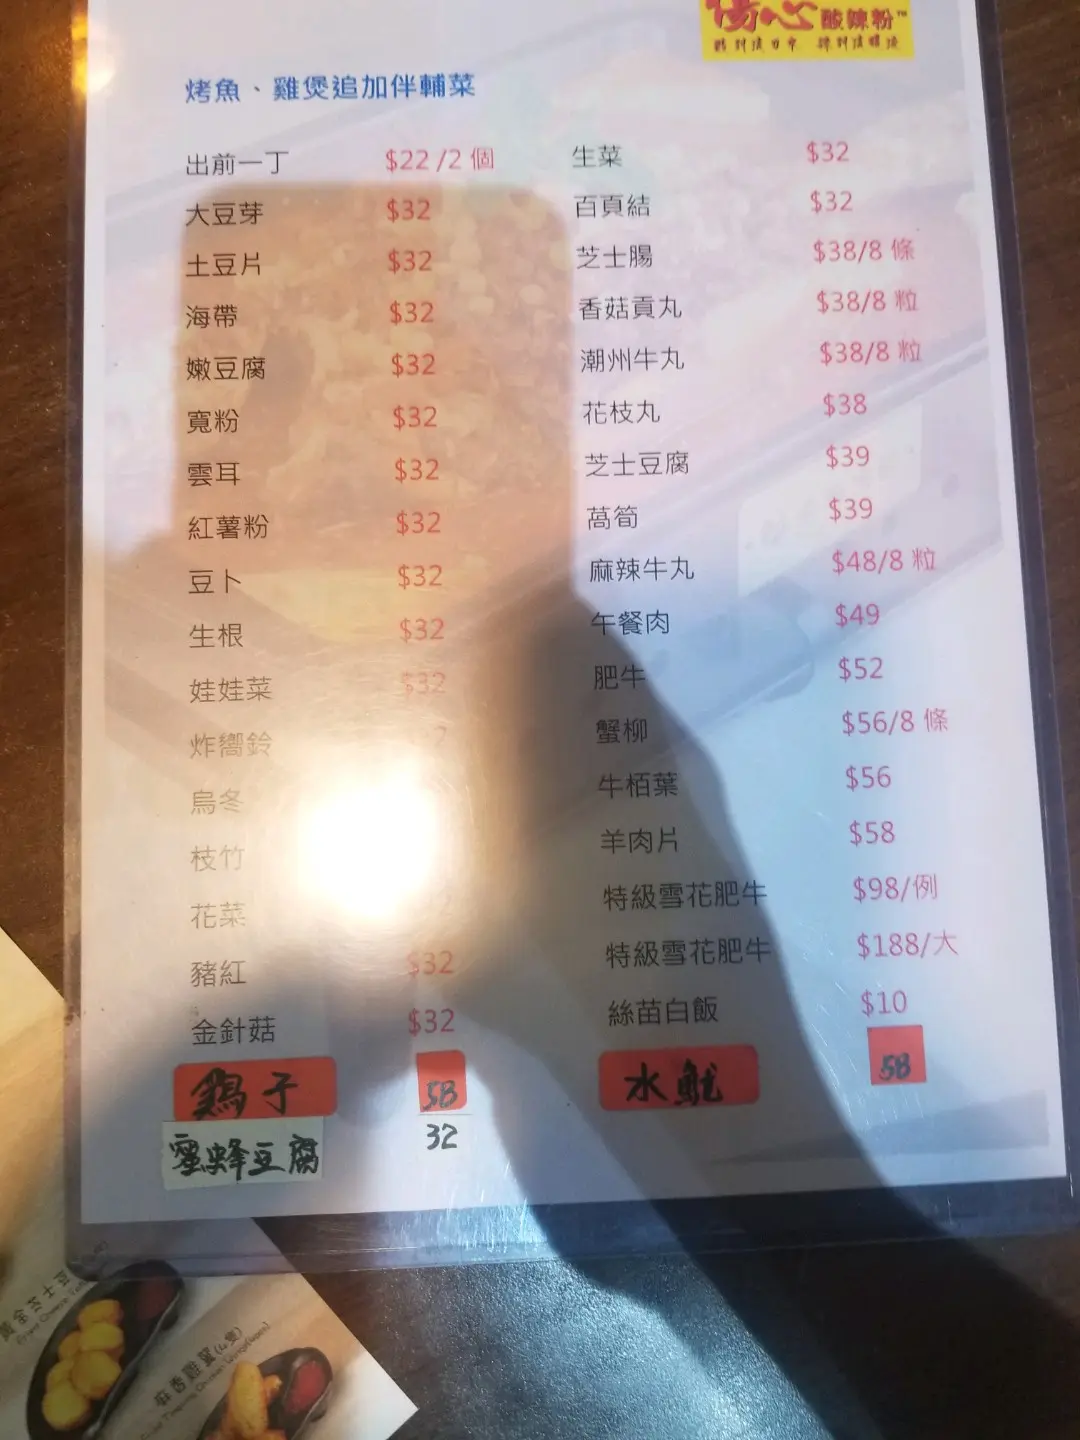 傷心酸辣粉™
烤魚、雞煲追加伴輔菜
出前一丁 $22 /2 個
大豆芽 $32
土豆片 $32
海帶 $32
嫩豆腐 $32
寬粉 $32
雲耳 $32
紅薯粉 $32
豆卜 $32
生根 $32
娃娃菜 $32
炸嚮鈴
烏冬
枝竹
花菜
豬紅 $32
金針菇 $32
鵝子 58
蜜蜂豆腐 32
生菜 $32
百頁結 $32
芝士腸 $38/8 條
香菇貢丸 $38/8 粒
潮州牛丸 $38/8 粒
花枝丸 $38
芝士豆腐 $39
萵筍 $39
麻辣牛丸 $48/8 粒
午餐肉 $49
肥牛 $52
蟹柳 $56/8 條
牛栢葉 $56
羊肉片 $58
特級雪花肥牛 $98/例
特級雪花肥牛 $188/大
絲苗白飯 $10
水魷 58
黃金芝士
麻香雞翼(4隻)